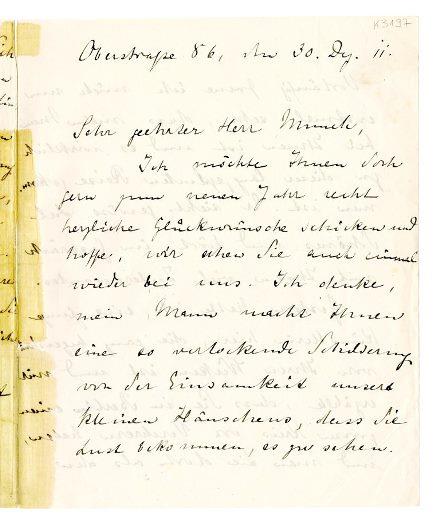 K3197
Oberstraße 86, den 30. Dez. 11.
Sehr geehrter Herr Munch,
Ich möchte Ihnen doch
gern zum neuen Jahr recht
herzliche Glückwünsche schicken und
hoffe, wir sehen Sie auch einmal
wieder bei uns. Ich denke,
mein Mann macht Ihnen
eine so verlockende Schilderung
von der Einsamkeit unsers
kleinen Häuschens, dass Sie
Lust bekommen, es zu sehen.